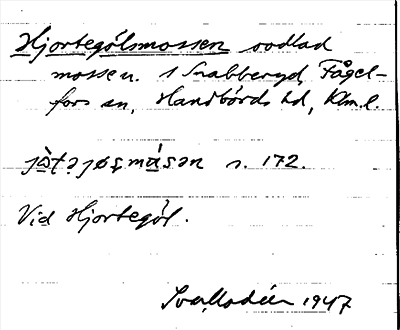 Hjortegölsmossen oodlad
mosse n. i Snabberyd, Fågel-
fors sn, Handbörds hd, Klm. l.
jòtəjøsmásən s. 172.
Vid Hjortegöl.
1947